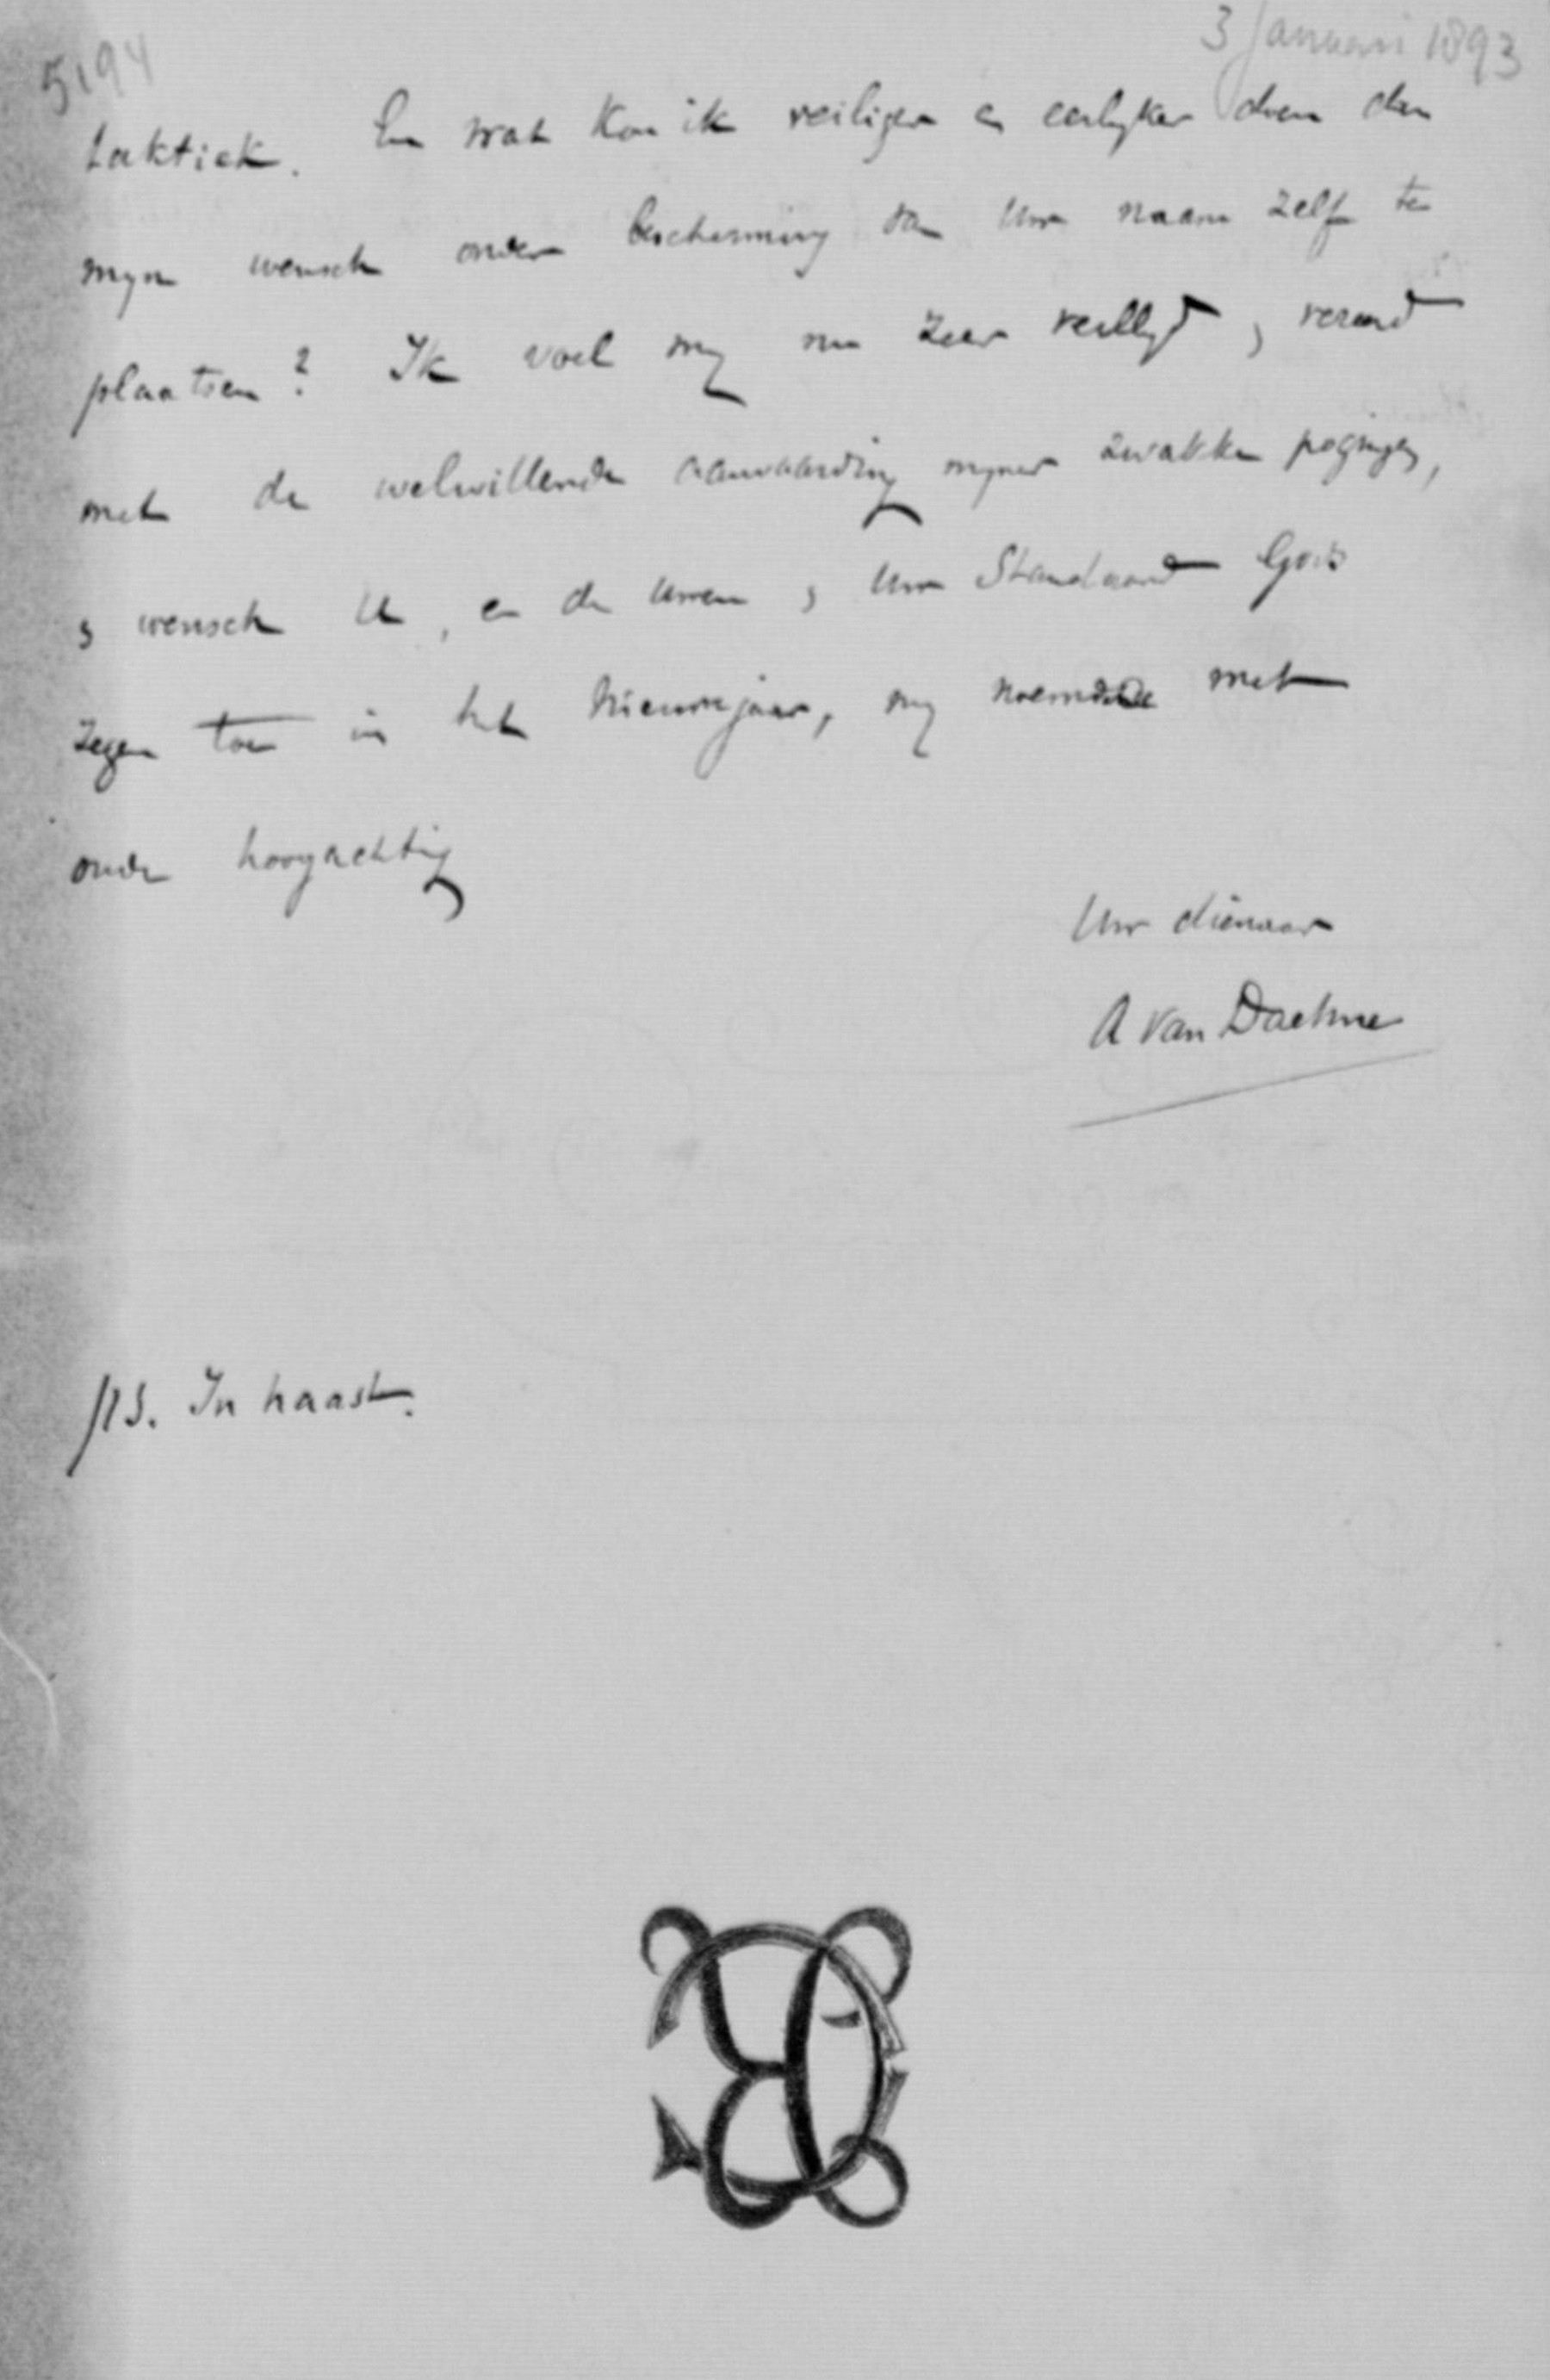 5194
3 Januari 1893
taktiek. En wat kon ik veiliger en eerlyker doen dan
myn wensch onder bescherming van Uw naam zelf te
plaatsen? Ik voel my nu zeer veilig
met de welwillende aanvaarding myner zwakke pogingen,
& wensch U, en de uwen, & Uw Standaard Gods
zegen toe in het Nieuwejaar, my noemende met
onde hoogachting
Uw dienaar
A van Daehne
PS. In haast.